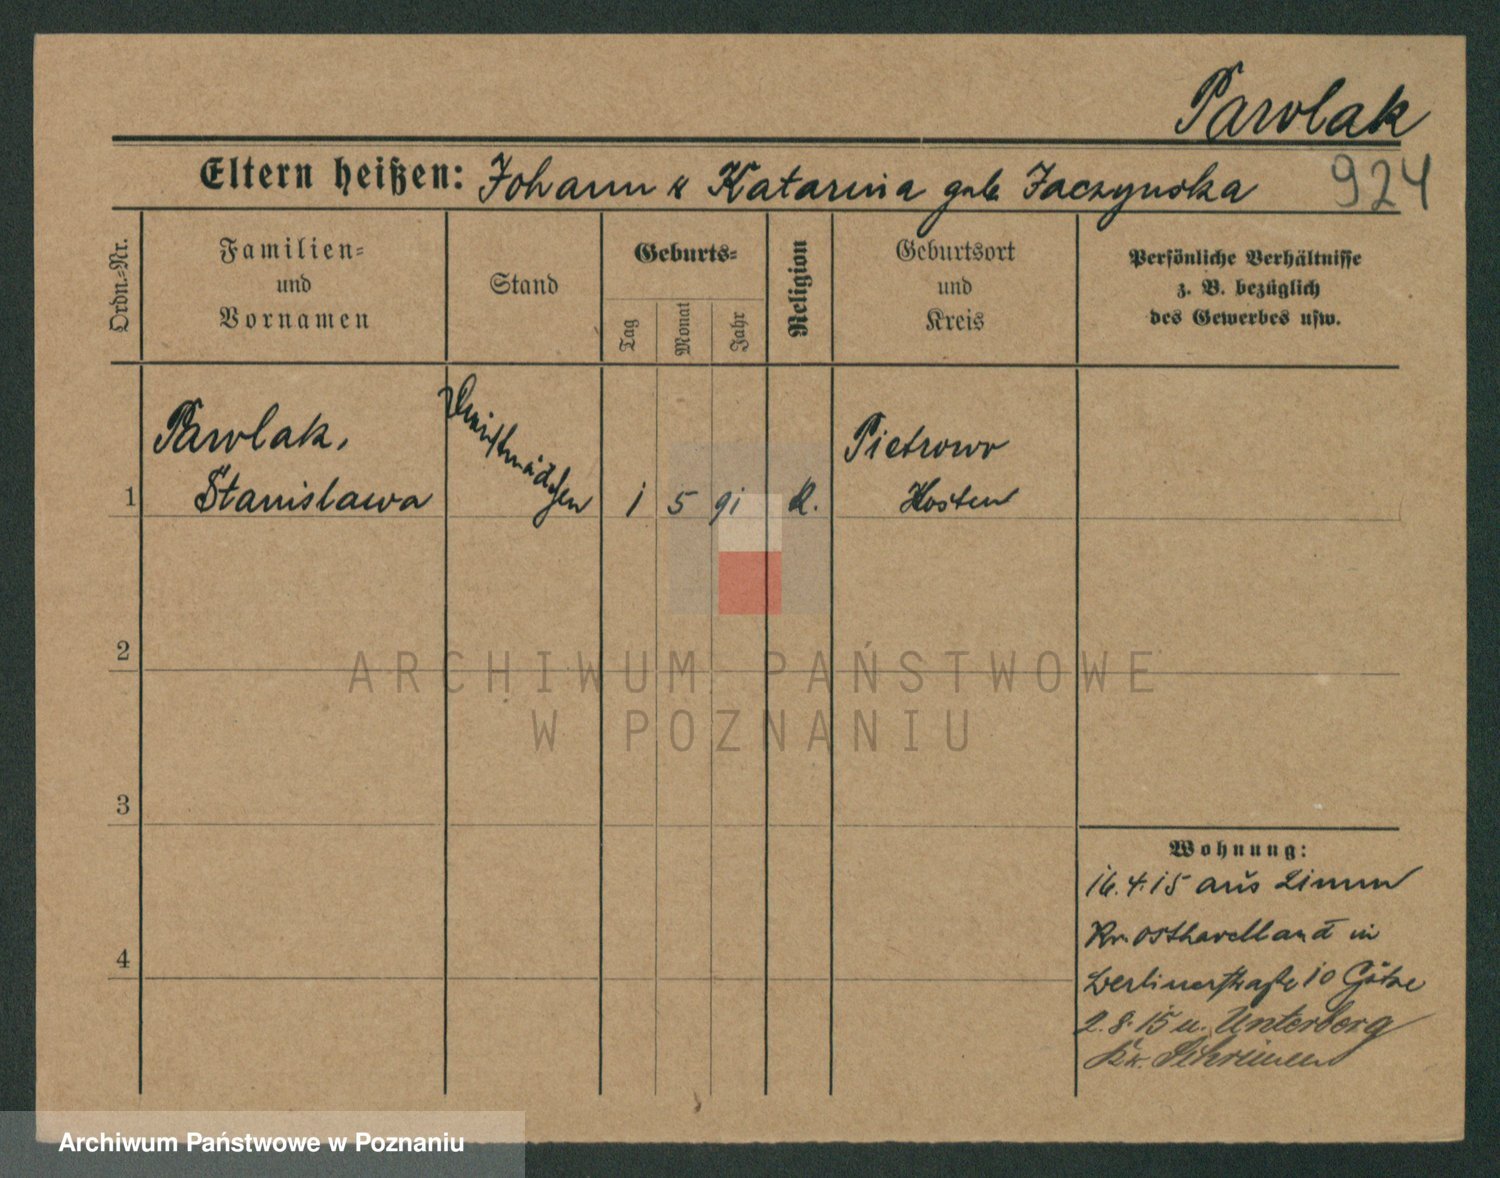 Pawlak
Eltern heißen: Johann u Katarina geb. Jaczynska
924
Ordn.=Nr.
Familien=
und
Vornamen
Stand
Geburts=
Tag
Monat
Jahr
Religion
Geburtsort
und
Kreis
Persönliche Verhältnisse
z. B. bezüglich
des Gewerbes usw.
Pawlak,
Stanislawa
Dienstmädchen
1
1 5 91
K.
Pietrowo
Kosten
2
3
4
Wohnung:
16.4.15 aus
Kr. Osthavelland in
Berlinerstraße 10
2.8.15 n. Unterberg
Kr. Schrimm
ARCHIWUM PAŃSTWOWE
W POZNANIU
Archiwum Państwowe w Poznaniu